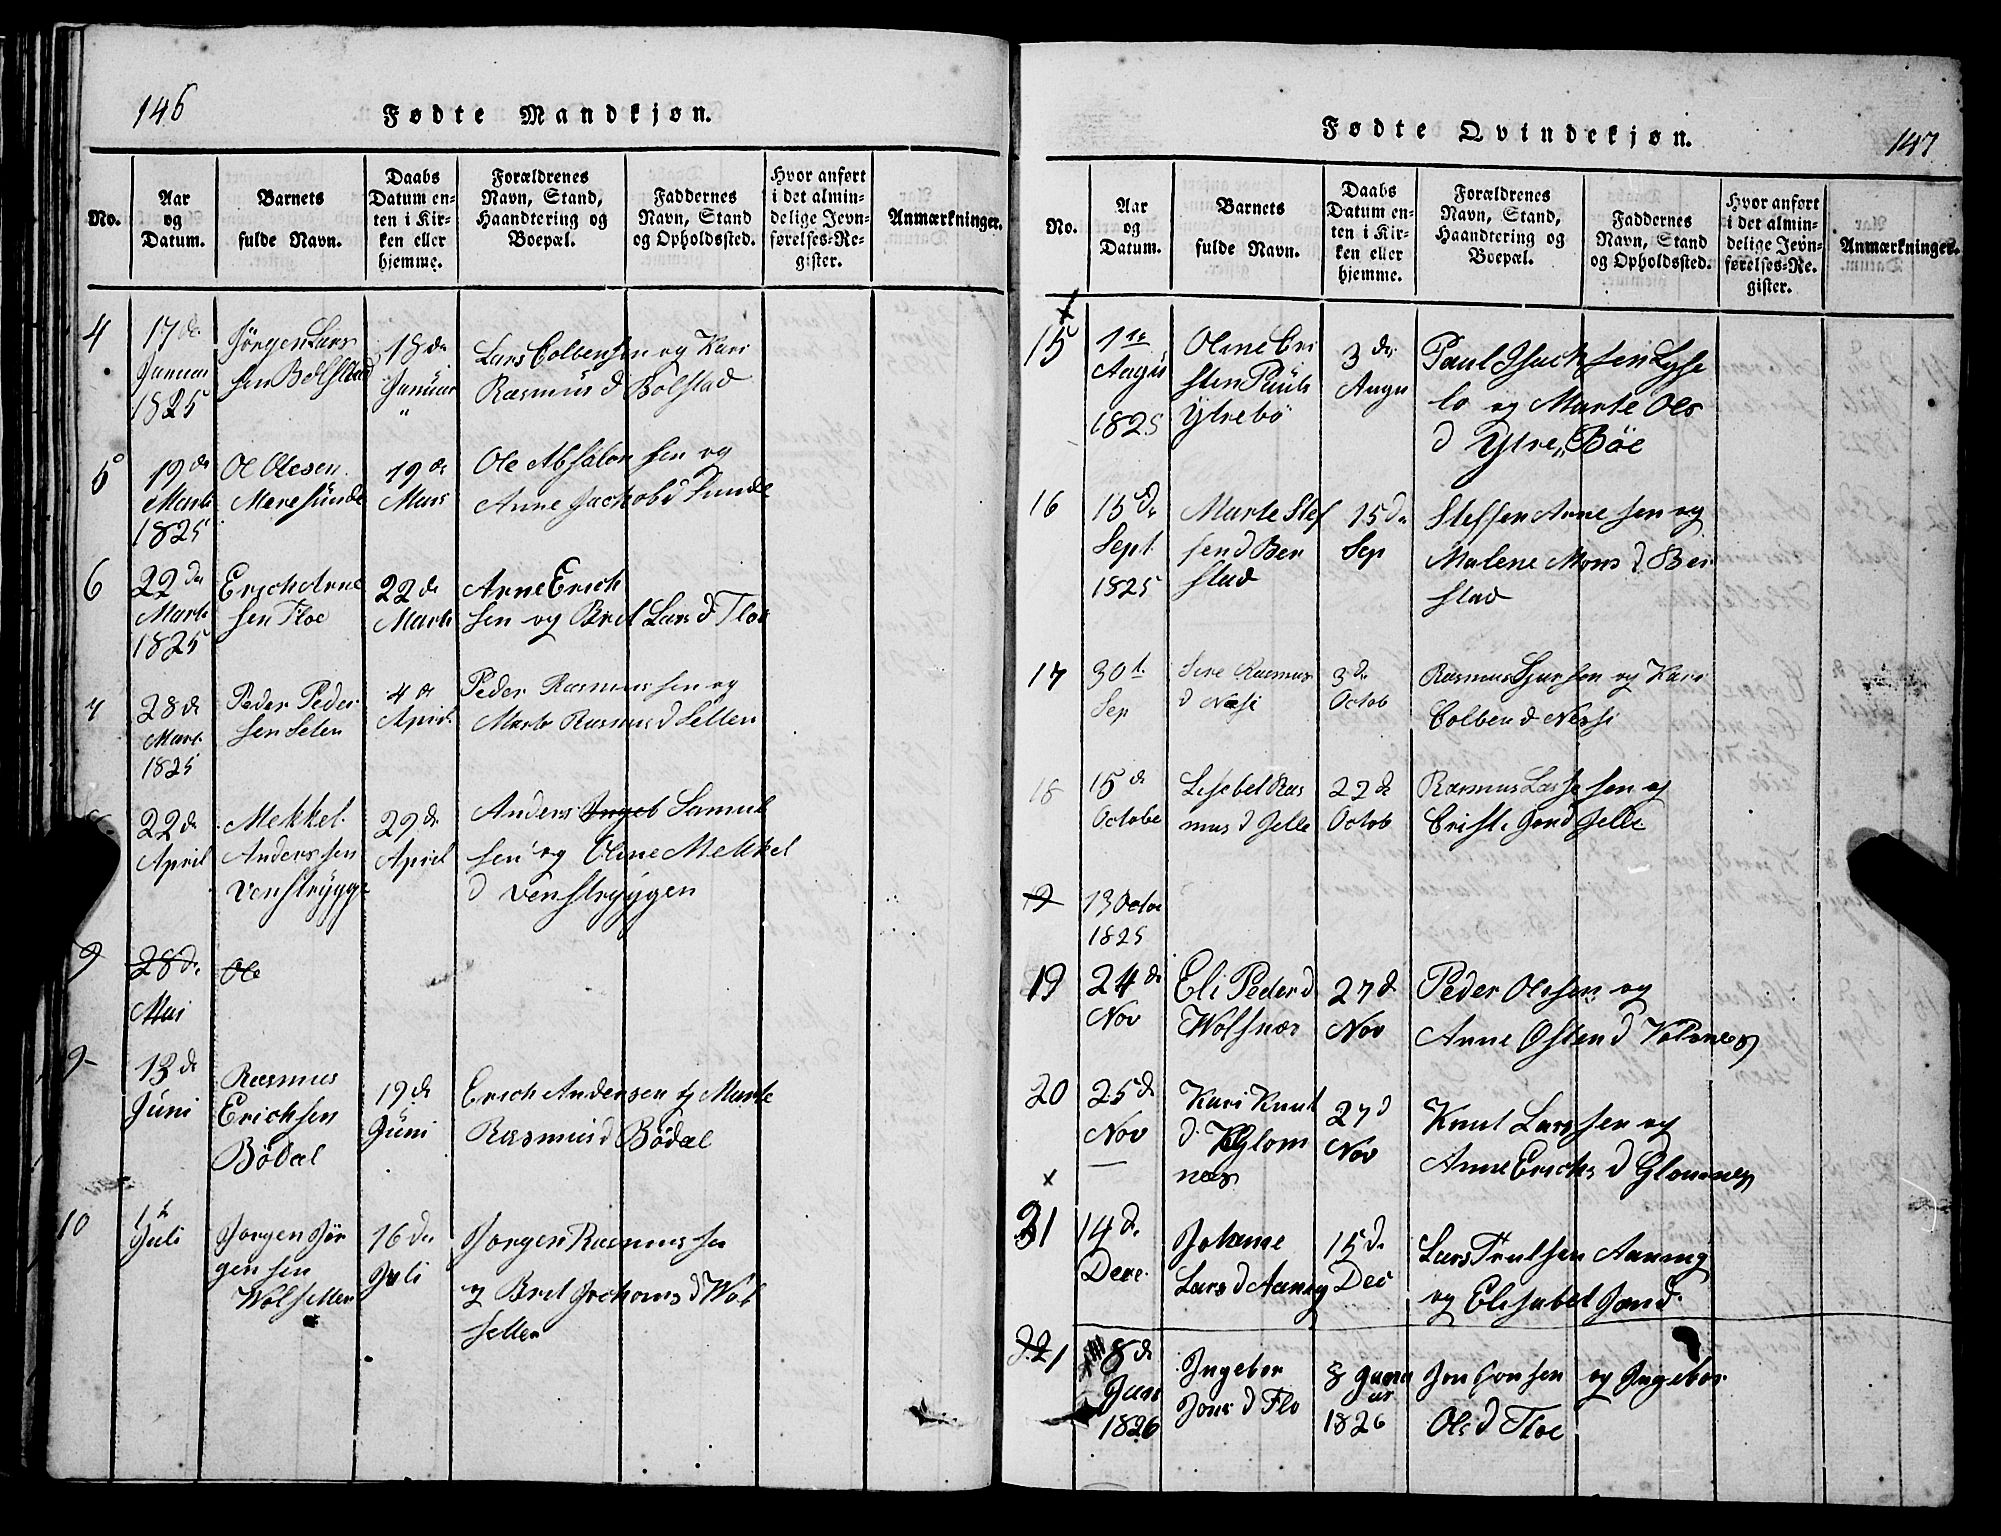 146
Fødte Mandkjøn.
No.
Aar og Datum.
Barnets fulde Navn.
Daabs Datum enten i Kirken eller hjemme.
Forældrenes Navn, Stand, Haandtering og Boepæl.
Faddernes Navn, Stand og Opholdssted.
Hvor anført i det almindelige Jevnførelses-Register.
Anmærkninger.
4
17 de
Januar
1825
Jörgen Lars
sen Bolstad
18 de
Januar
"
Lars Colbensen og Kari
Rasmus d Bolstad
5
19 de
Marti
1825
Ol Olesen
Meresunde
19 de
Mars
Ole Absalon sen og
Anne Jachob d Sunde
6
22 de
Marti
1825
Erich Arne
sen Floe
22 de
Marti
Arne Erich
sen og Bret Lars d Floe
7
28 de
Mart
1825
Peder Peder
sen Seten
4 de
April
Peder Rasmus sen og
Marte Rasmus d Setten
22 de
April
Mekkel
Anders sen
Venstrygge
29 de
April
Anders Ingeb Samuel
sen og Oline Mekkel
d Venstryggen
9
28 de
Mai
Ole
9
13 de
Juni
Rasmus
Erichsen
Bödal
19 de
Juni
Erich Andersen og Marte
Rasmus d Bödal
10
1 t
Juli
Jorgen Jör
gensen
Wolsetten
16 de
Juli
Jorgen Rasmus sen
og Bret Jochoms d Wol
setten
147
Fødte Qvindekjøn.
No.
Aar og Datum.
Barnets fulde Navn.
Daabs Datum enten i Kirken eller hjemme.
Forældrenes Navn, Stand, Haandtering og Boepæl.
Faddernes Navn, Stand og Opholdssted.
Hvor anført i det almindelige Jevnførelses-Register.
Anmærkninger.
x
15
1 te
Augus
1825
Oline Cri
sten Pauls
Ytrebö
3 de
Augu
Paul Isach sen Lyse
lo og Marte Ols
d Ytre Böe
16
15 de
Sept
1825
Marte Stef
fen d Ber
stad
15 de
Sep
Steffen Arne sen og
Malene Mons d Ber
stad
17
30 t
Sep
Sire Rasmus
d Næsi
3 de
Octob
Rasmus Sjursen og Kari
Colben d Nessi
18
15 de
Octobe
Lisebet Ras
mus d Jelle
22 de
Octob
Rasmus Lasse sen og
Cristi Jon d Jelle
19
13 Octo
1825
19
24 de
Nov
Eli Peder d
Wolsnes
27 d
Nov
Peder Olesen og
Anne Osten d Volsnes
20
25 de
Nov
Kari Knut
d Glom
nes
27 d
Nov
Knut Lars sen og
Anne Erichs d Glomnes
x
21
14 de
Dece
Johanne
Lars d Aaning
15 de
Dec
Lars Trulsen Aaning
og Elisabet Jon d
21
8 de
Janr
1826
Ingebor
Jons d Flo
8 Janu
ar
1826
Jon Jonsen og Ingebor
Ole d Floe